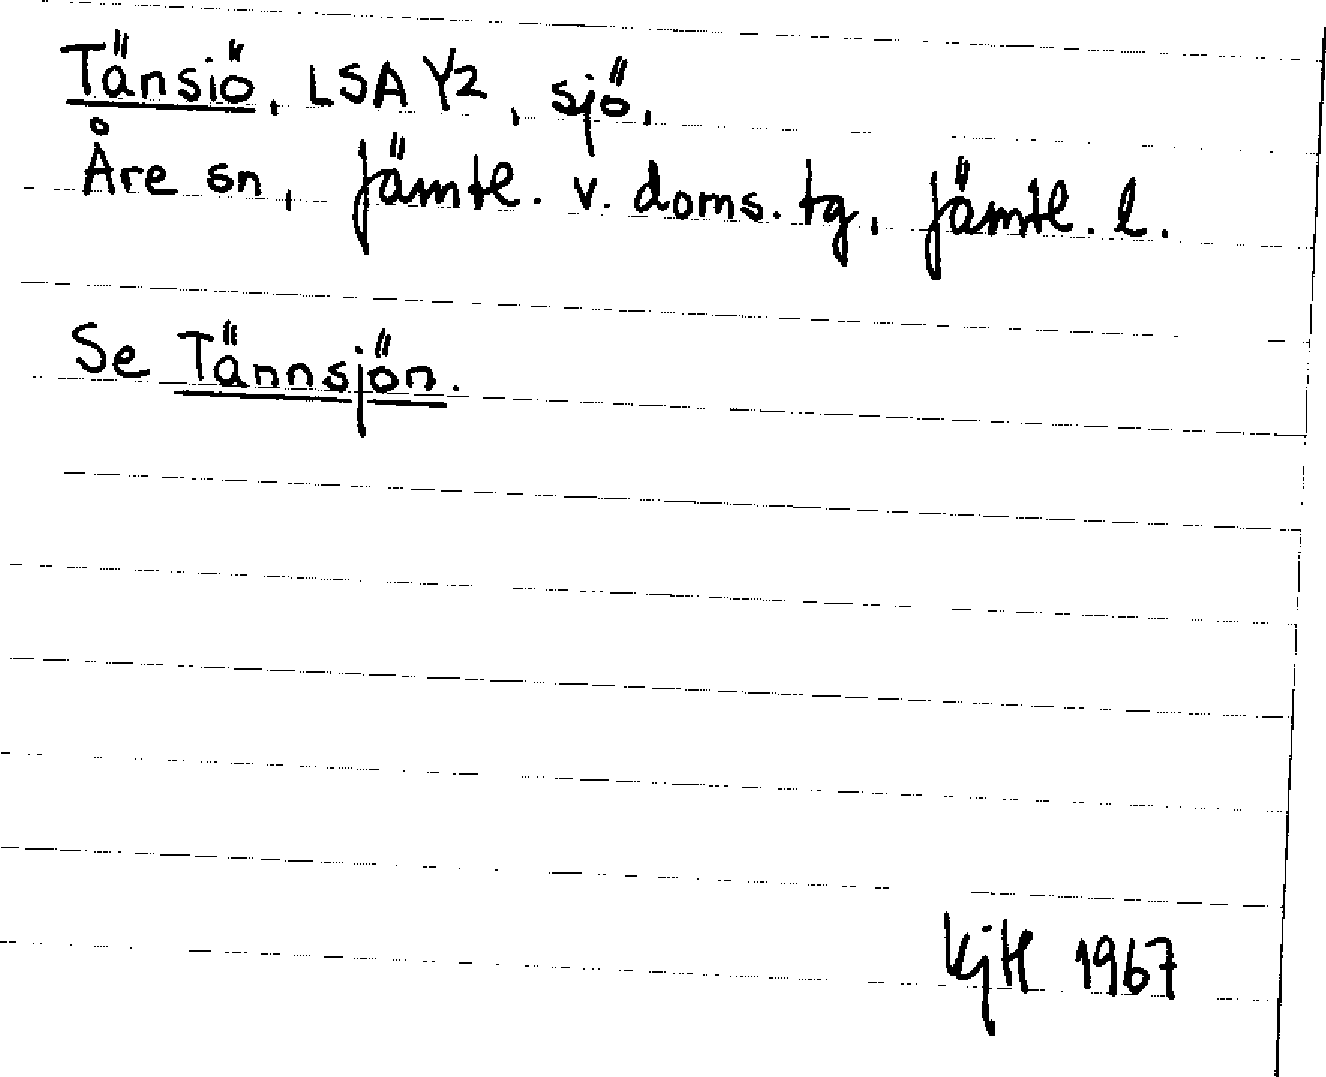 Tänsiö, LSA Y2, sjö,
Åre sn, Jämtl. v. doms. tg, Jämtl. l.
Se Tännsjön.
KjH 1967